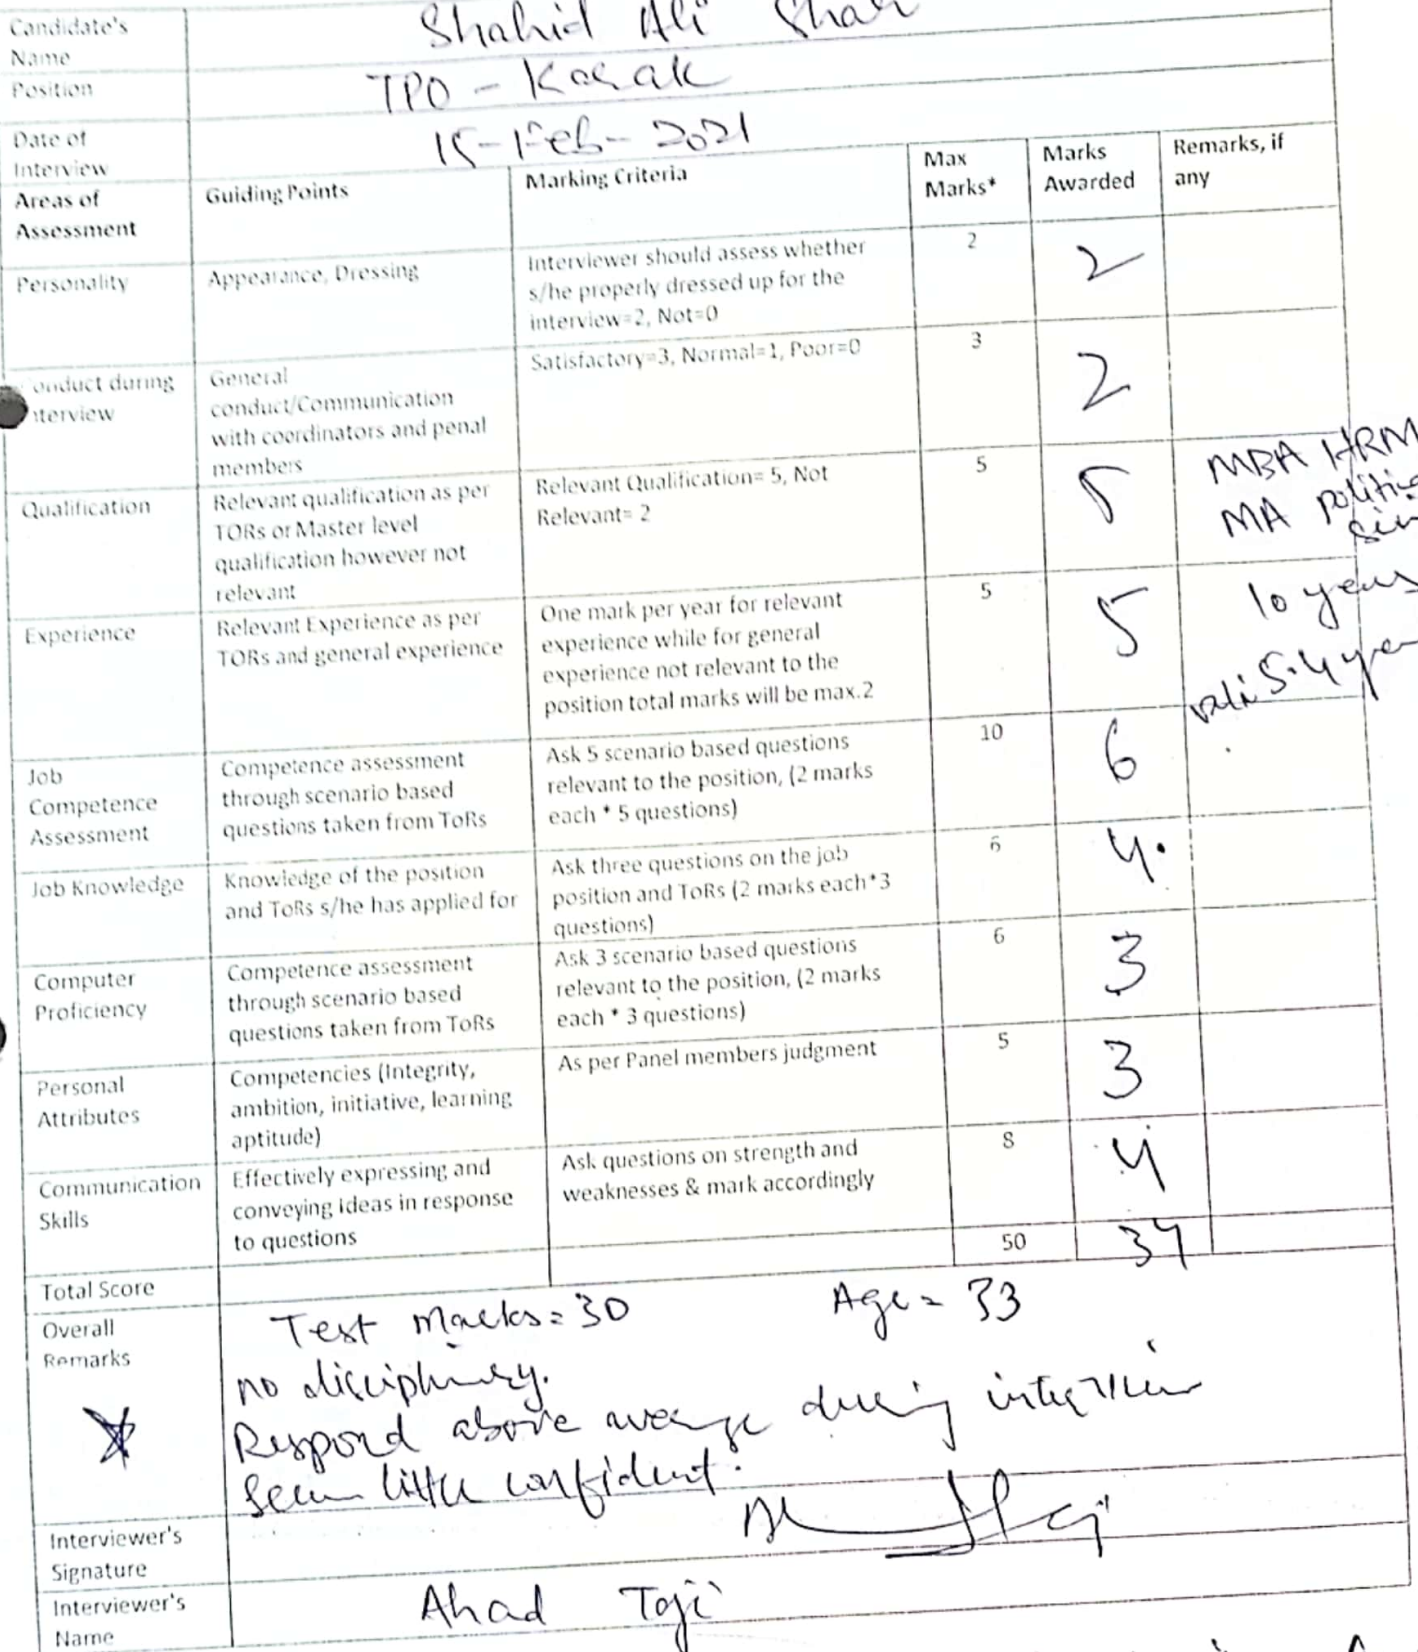 Candidate's Name Shahid Ali Shah
Position TPO - Karak
Date of Interview 15-Feb-2021
Areas of Assessment | Guiding Points | Marking Criteria | Max Marks* | Marks Awarded | Remarks, if any
Personality | Appearance, Dressing | Interviewer should assess whether s/he properly dressed up for the interview=2, Not=0 | 2 | 2
onduct during nterview | General conduct/Communication with coordinators and penal members | Satisfactory=3, Normal=1, Poor=0 | 3 | 2
Qualification | Relevant qualification as per TORs or Master level qualification however not relevant | Relevant Qualification= 5, Not Relevant= 2 | 5 | 5 | MBA HRM MA politic
Experience | Relevant Experience as per TORs and general experience | One mark per year for relevant experience while for general experience not relevant to the position total marks will be max.2 | 5 | 5 | 10 years 5.4 year
Job Competence Assessment | Competence assessment through scenario based questions taken from ToRs | Ask 5 scenario based questions relevant to the position, (2 marks each * 5 questions) | 10 | 6
Job Knowledge | Knowledge of the position and ToRs s/he has applied for | Ask three questions on the job position and ToRs (2 marks each*3 questions) | 6 | 4.
Computer Proficiency | Competence assessment through scenario based questions taken from ToRs | Ask 3 scenario based questions relevant to the position, (2 marks each * 3 questions) | 6 | 3
Personal Attributes | Competencies (Integrity, ambition, initiative, learning aptitude) | As per Panel members judgment | 5 | 3
Communication Skills | Effectively expressing and conveying ideas in response to questions | Ask questions on strength and weaknesses & mark accordingly | 8 | 4
Total Score | 50 | 34
Overall Remarks Test Marks=30 Age= 33
no disciplinary.
Respond above average during interview
Seem little confident.
Interviewer's Signature
Interviewer's Name Ahad Toji